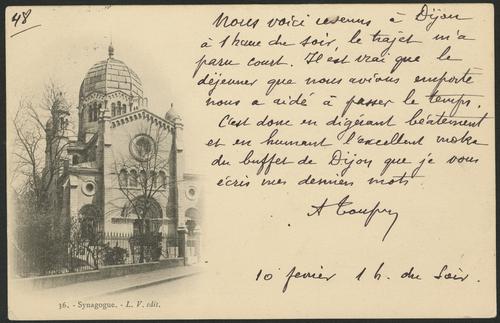 48
Nous voici revenus à Dijon
à 1 heure du soir, le trajet m'a
paru court. Il est vrai que le
déjeuner que nous avions emporté
nous a aidé à passer le temps.
C'est donc en digérant béatement
et en humant l'excellent moka
du buffet de Dijon que je vous
écris mes derniers mots
10 fevrier 1 h. du Soir.
36. - Synagogue. - L. V. edit.